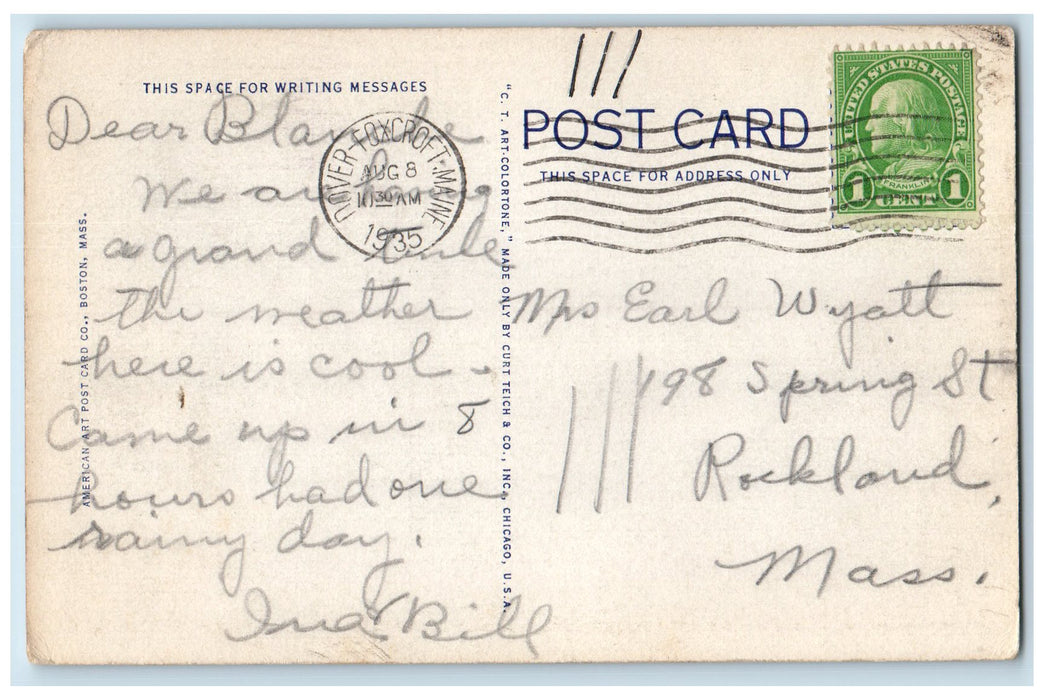 THIS SPACE FOR WRITING MESSAGES
Dear Blanche
We are having
a grand time
the weather
here is cool -
Came up in 8
hours had one
rainy day.
Ina & Bill
AMERICAN ART POST CARD CO., BOSTON, MASS.
"C. T. ART-COLORTONE," MADE ONLY BY CURT TEICH & CO., INC., CHICAGO, U.S.A.
DOVER-FOXCROFT, MAINE
AUG 8
10 30 AM
1935
POST CARD
THIS SPACE FOR ADDRESS ONLY
UNITED STATES POSTAGE
FRANKLIN
1 CENT 1
Mrs Earl Wyatt
198 Spring St
Rockland,
Mass.